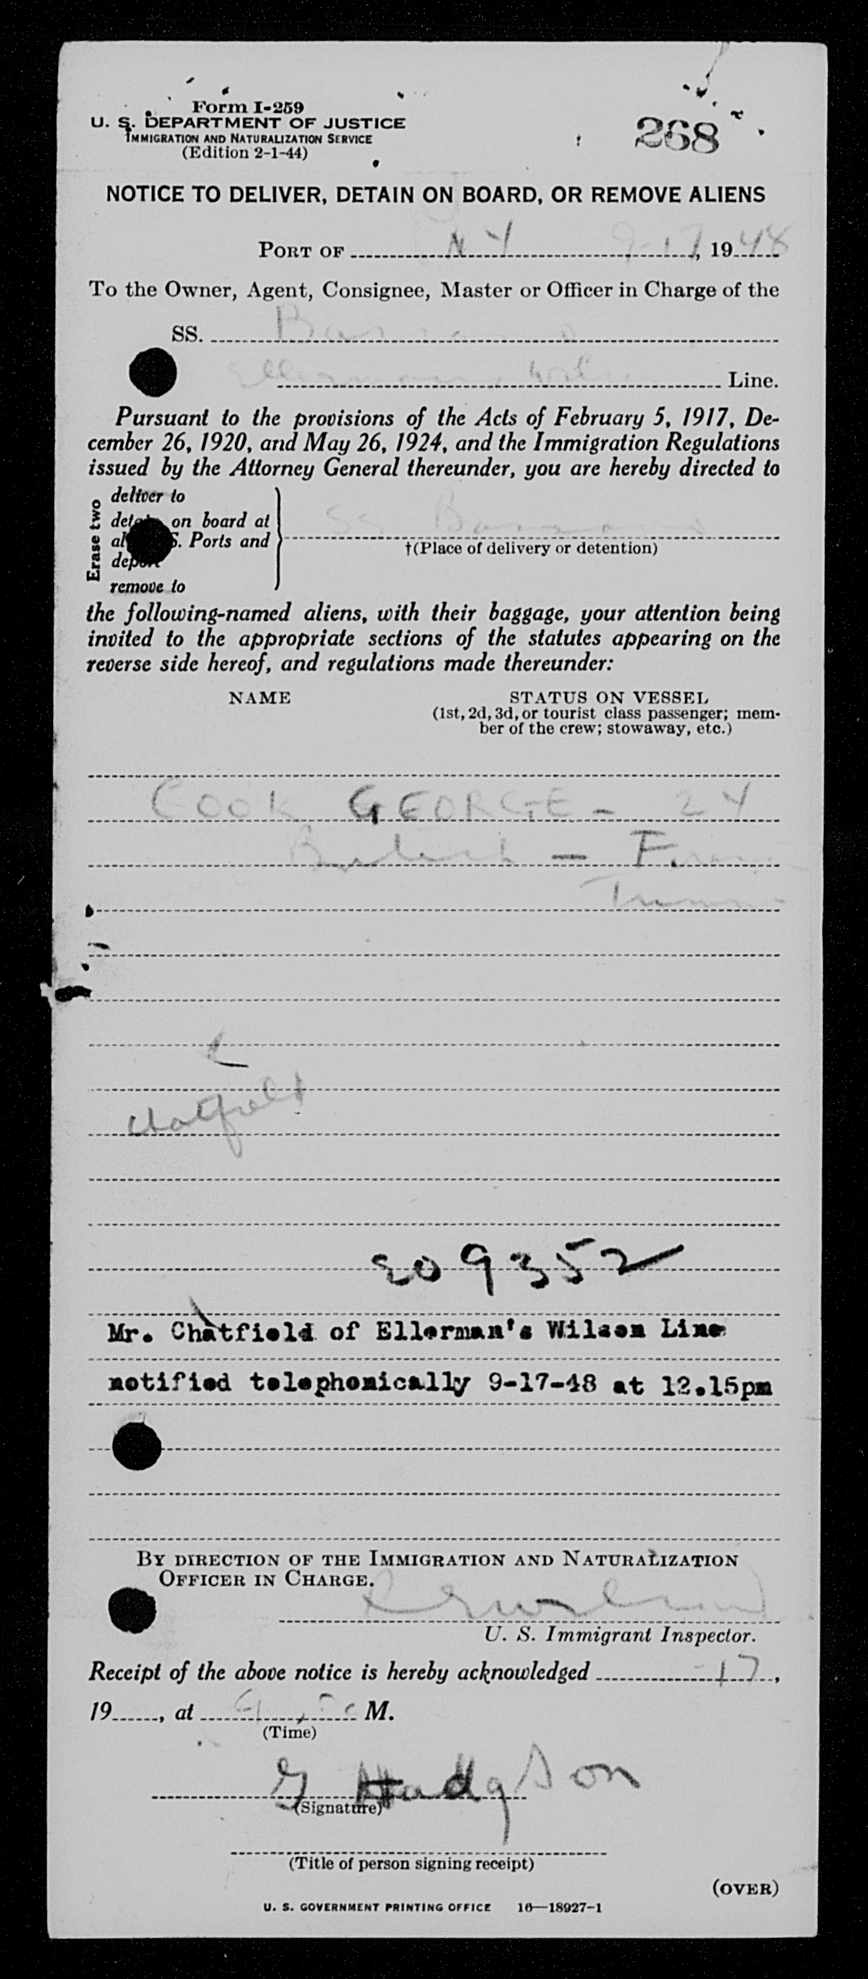 Form I-259
U. S. DEPARTMENT OF JUSTICE
IMMIGRATION AND NATURALIZATION SERVICE
(Edition 2-1-44)
268
NOTICE TO DELIVER, DETAIN ON BOARD, OR REMOVE ALIENS
PORT OF N Y 9-17, 1948
To the Owner, Agent, Consignee, Master or Officer in Charge of the
SS.
Ellerman's Wilson Line.
Pursuant to the provisions of the Acts of February 5, 1917, De-
cember 26, 1920, and May 26, 1924, and the Immigration Regulations
issued by the Attorney General thereunder, you are hereby directed to
Erase two
deliver to
detain on board at
all U.S. Ports and
deport
remove to
SS
†(Place of delivery or detention)
the following-named aliens, with their baggage, your attention being
invited to the appropriate sections of the statutes appearing on the
reverse side hereof, and regulations made thereunder:
NAME STATUS ON VESSEL
(1st, 2d, 3d, or tourist class passenger; mem-
ber of the crew; stowaway, etc.)
COOK GEORGE - 24
British -
Chatfield
909352
Mr. Chatfield of Ellerman's Wilson Line
notified telephonically 9-17-48 at 12.15pm
BY DIRECTION OF THE IMMIGRATION AND NATURALIZATION
OFFICER IN CHARGE.
U. S. Immigrant Inspector.
Receipt of the above notice is hereby acknowledged 17,
19, at M.
(Time)
G Hudgson
(Signature)
(Title of person signing receipt)
(OVER)
U. S. GOVERNMENT PRINTING OFFICE 16—18927-1